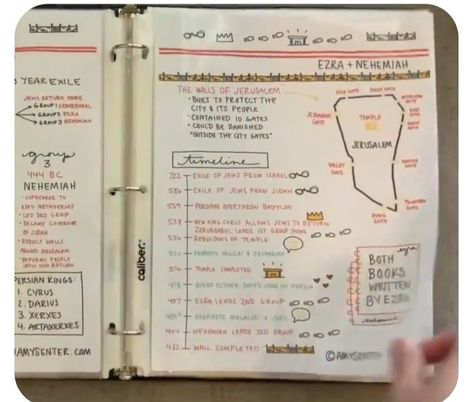 YEAR EXILE
JEWS RETURN HOME
GROUP 1 ZERUBBABEL
GROUP 2 EZRA
GROUP 3 NEHEMIAH
group
3
444 BC
NEHEMIAH
CUPBEARER TO
KING ARTAXERXES
LED 3RD GROUP
BECAME GOVERNOR
OF JUDAH
REBUILT WALLS
AROUND JERUSALEM
REFORMS PEOPLE
PERSIAN KINGS:
1. CYRUS
2. DARIUS
3. XERXES
4. ARTAXERXES
AMYSENTER.COM
caliber
EZRA + NEHEMIAH
THE WALLS OF JERUSALEM
• BUILT TO PROTECT THE
CITY & ITS PEOPLE
• CONTAINED 10 GATES
• COULD BE BANISHED
"OUTSIDE THE CITY GATES"
TEMPLE
JERUSALEM
VALLEY
GATE
WATER
GATE
FOUNTAIN
GATE
DUNG
GATE
timeline
722 EXILE OF JEWS FROM ISRAEL
586 EXILE OF JEWS FROM JUDAH
539 PERSIANS OVERTHROW BABYLON
538 NEW KING CYRUS ALLOWS JEWS TO RETURN
ZERUBBABEL LEADS 1ST GROUP HOME
536 REBUILDING OF TEMPLE
PROPHETS HAGGAI & ZECHARIAH
516 TEMPLE COMPLETED
478 QUEEN ESTHER SAVES JEWS IN PERSIA
457 EZRA LEADS 2ND GROUP
PROPHETS MALACHI & JOEL
444 NEHEMIAH LEADS 3RD GROUP
432 WALL COMPLETED
ezra
BOTH
BOOKS
WRITTEN
BY EZRA
nehemiah
©AMYSENTER